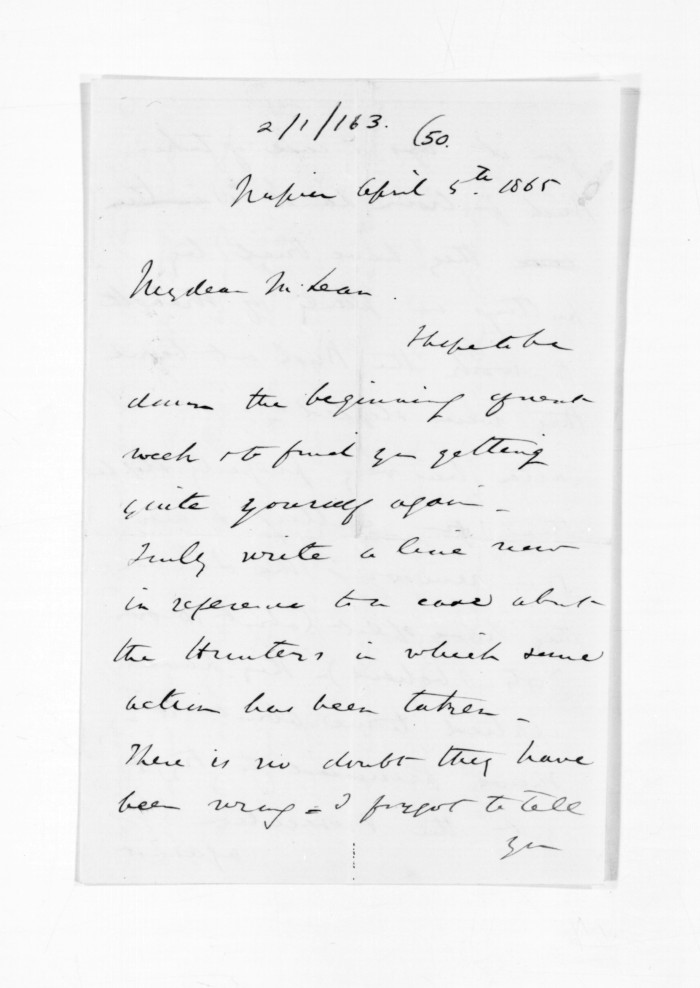 2/1/163. (50.
Napier April 5th 1865
My dear McLean.
I hope to be
down the beginning of next
week & to find you getting
quite yourself again -
I only write a line now
in reference to a case about
the Hunters in which some
action has been taken -
There is no doubt they have
been wrong - I forgot to tell
you